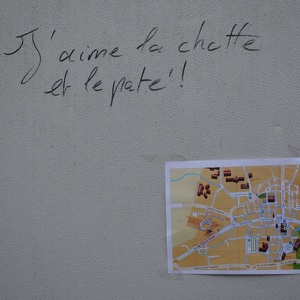 J'aime la chatte
et le paté !